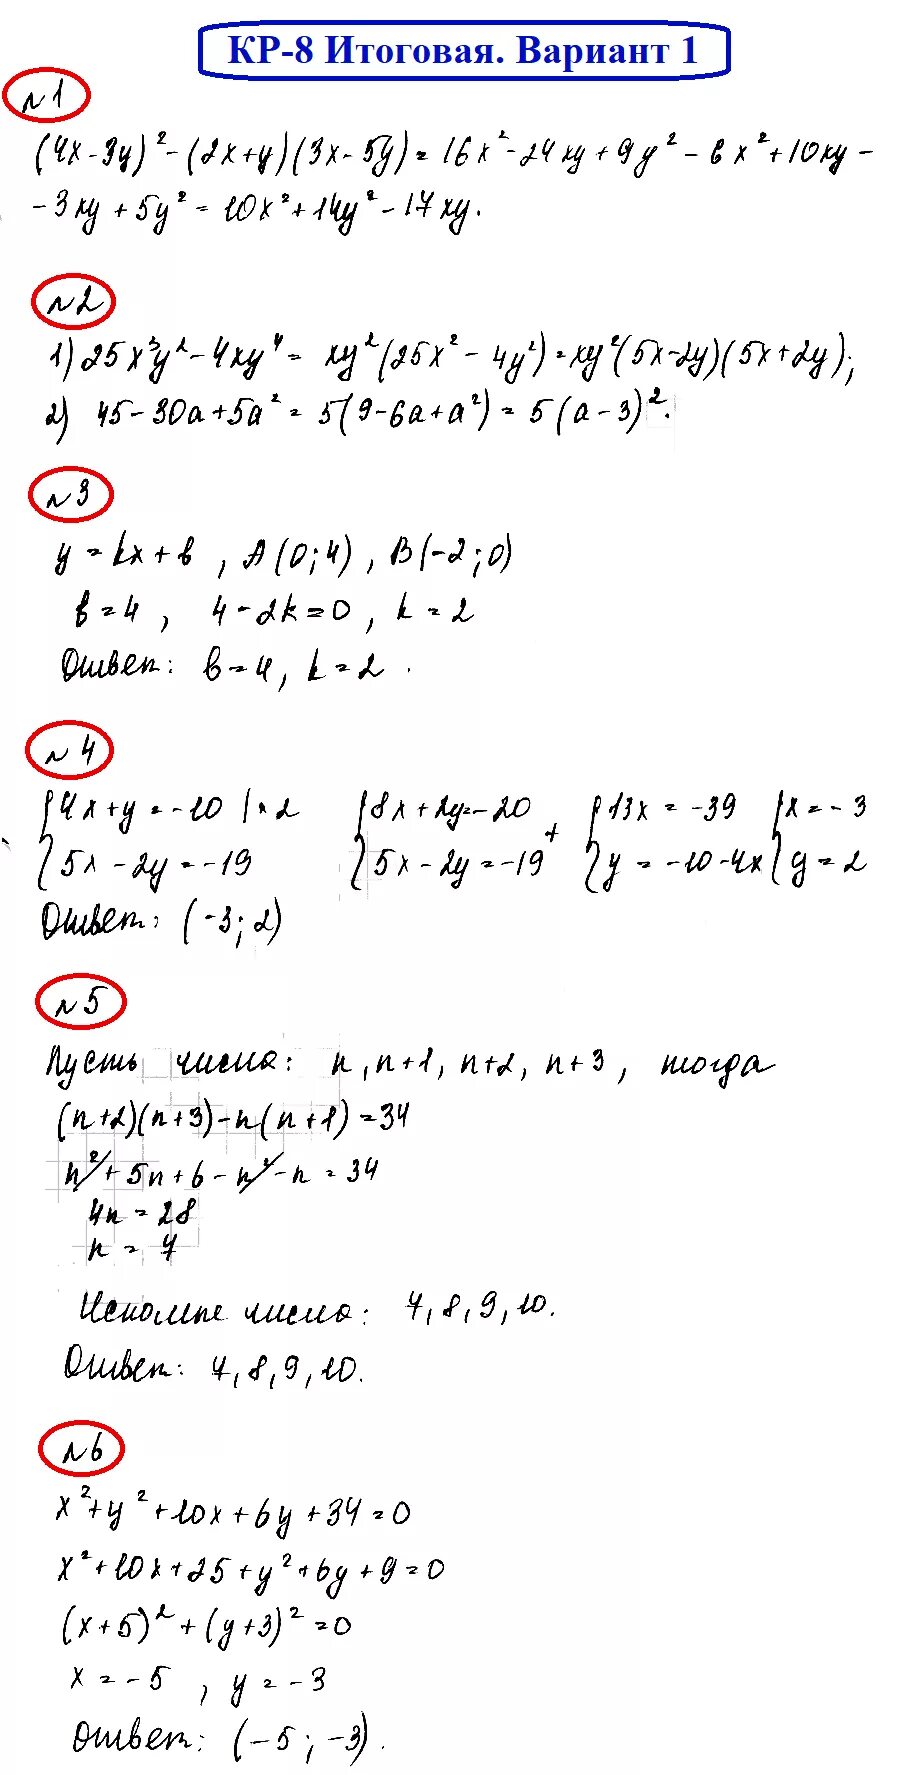 КР-8 Итоговая. Вариант 1
№1
(4x-3y)²-(2x+y)(3x-5y)=16x²-24xy+9y²-6x²+10xy-
-3xy+5y²=10x²+14y²-17xy.
№2
1) 25x³y²-4xy⁴= xy²(25x²-4y²)=xy²(5x-2y)(5x+2y);
2) 45-30a+5a²=5(9-6a+a²)=5(a-3)².
№3
y=kx+b, A(0;4), B(-2;0)
b=4, 4-2k=0, k=2
Ответ: b=4, k=2.
№4
{4x+y=-10 |·2 {8x+2y=-20 + {13x=-39 {x=-3
{5x-2y=-19 {5x-2y=-19 {y=-10-4x {y=2
Ответ: (-3;2)
№5
Пусть числа: n, n+1, n+2, n+3, тогда
(n+2)(n+3)-n(n+1)=34
n²+5n+6-n²-n=34
4n=28
n=7
Искомые числа: 7,8,9,10.
Ответ: 7,8,9,10.
№6
x²+y²+10x+6y+34=0
x²+10x+25+y²+6y+9=0
(x+5)²+(y+3)²=0
x=-5, y=-3
Ответ: (-5;-3).